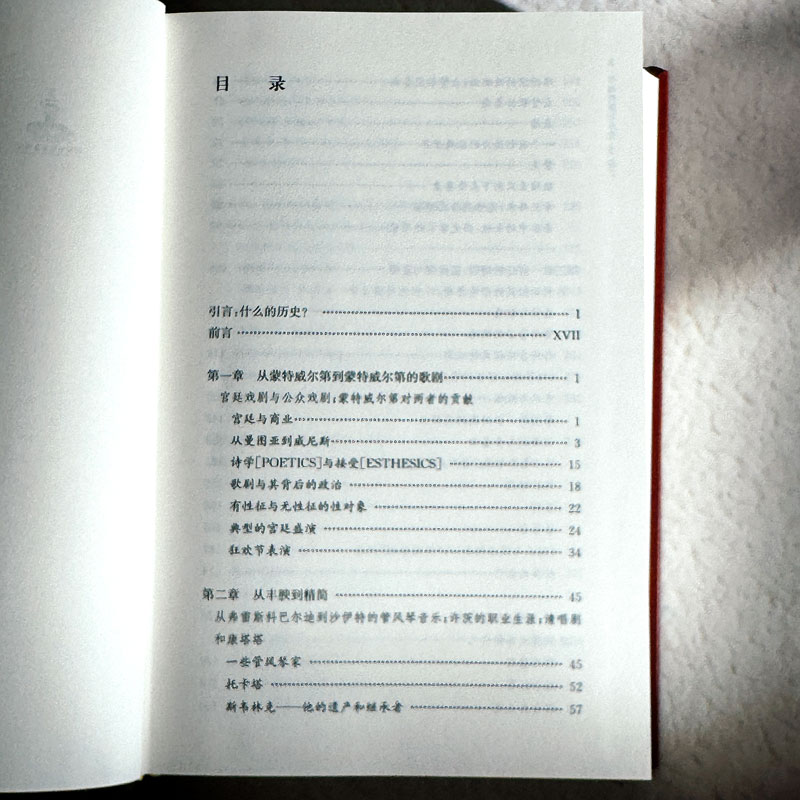 目 录
引言：什么的历史？ 1
前言 XVII
第一章 从蒙特威尔第到蒙特威尔第的歌剧 1
宫廷戏剧与公众戏剧；蒙特威尔第对两者的贡献
宫廷与商业 1
从曼图亚到威尼斯 3
诗学[POETICS]与接受[ESTHESICS] 15
歌剧与其背后的政治 18
有性征与无性征的性对象 22
典型的宫廷盛演 24
狂欢节表演 34
第二章 从丰腴到精简 45
从弗雷斯科巴尔迪到沙伊特的管风琴音乐；许茨的职业生涯；清唱剧
和康塔塔
一些管风琴家 45
托卡塔 52
斯韦林克——他的遗产和继承者 57